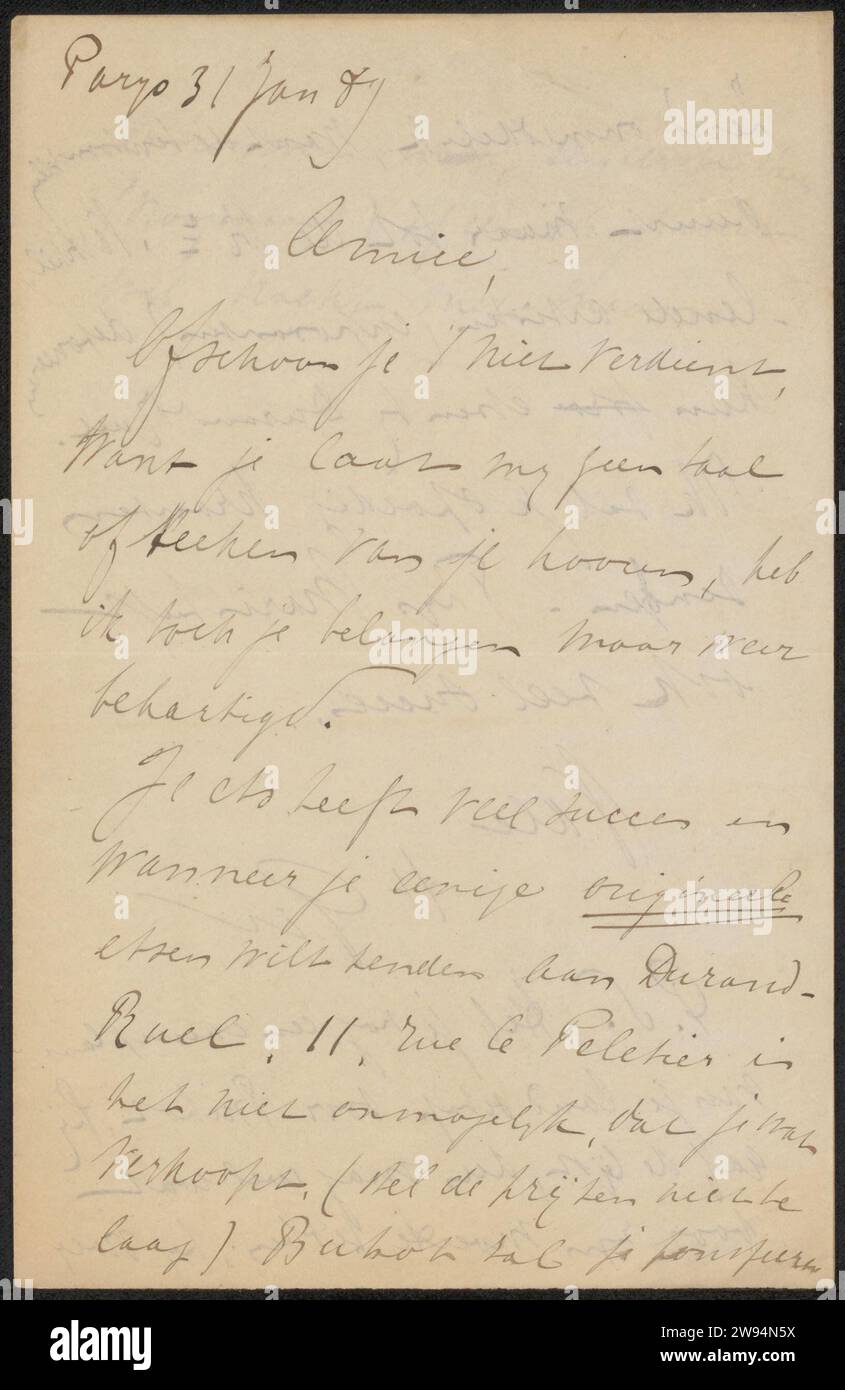 Parys 31 Jan 89
Amice,
Ofschoon je 't niet verdient,
want je laat my geen taal
of teeken van je hooren, heb
ik toch je belangen maar weer
behartigd.
Je ets heeft veel succes en
wanneer je eenige origineele
etsen wilt zenden aan Durand-
Ruel, 11, rue le Peletier is
het niet onmogelyk, dat je wat
verkoopt, (stel de prijzen niet te
laag) Buhot zal je
alamy
Image ID: 2W94N5X
www.alamy.com